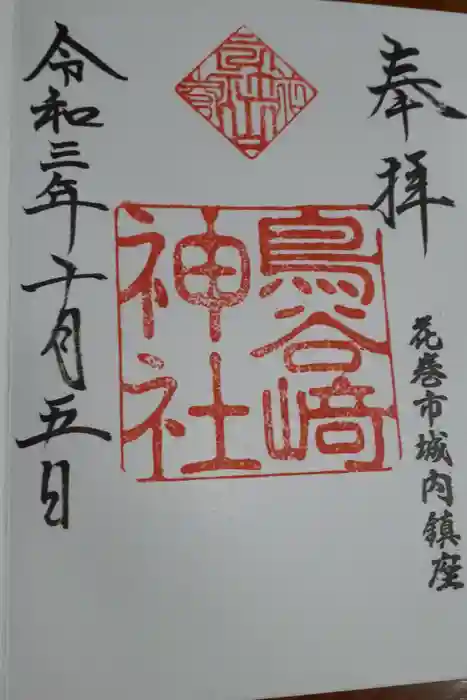 奉拝
花巻市城内鎮座
鳥谷崎
神社
令和三年十月五日